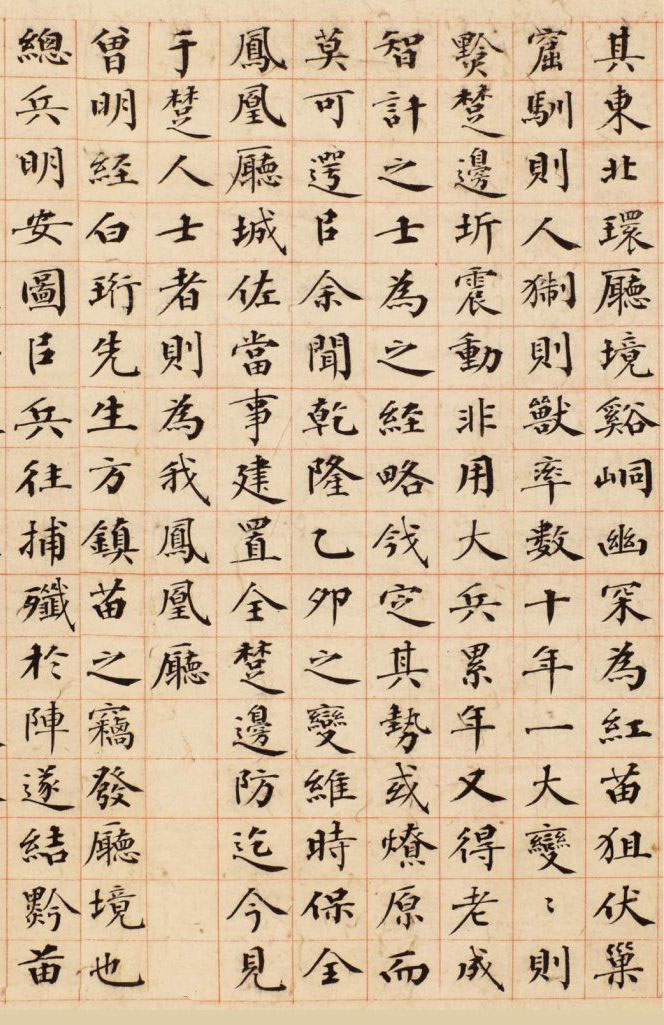 其東北環廳境谿峒幽罙為紅苗狙伏巢
窟馴則人猘則獸率數十年一大變〻則
黔楚邊圻震動非用大兵累年又得老成
智計之士為之經略戡定其勢或燎原而
莫可遌㠯余聞乾隆乙卯之變維時保全
鳳凰廳城佐當事建置全楚邊防迄今見
于楚人士者則為我鳳凰廳
曾明経白珩先生方鎮苗之竊發廳境也
總兵明安圖㠯兵往捕殲於陣遂結黔苗